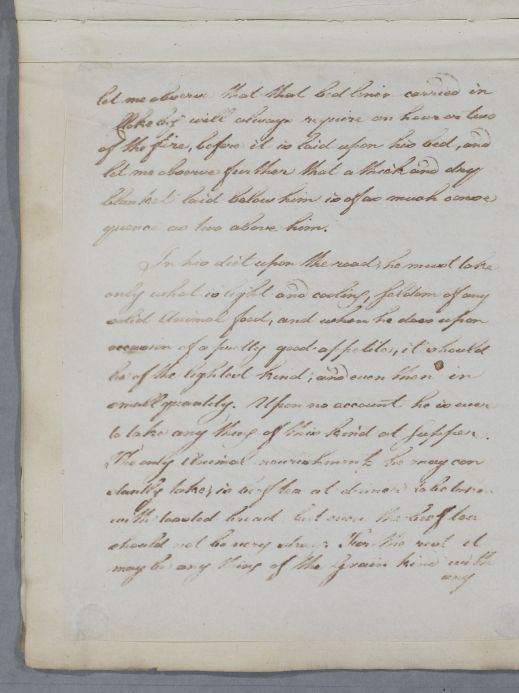 let me observe that that bed linen carried in
Cloke bag will always require an hour or two
of the fire, before it is laid upon his bed, and
let me observe further that a thick and dry
blanket laid below him is of as much conse
quence as two above him.
In his diet upon the road, he must take
only what is light and cooling, seldom of any
solid Animal food, and when he does upon
occasion of a pretty good appetite, it should
be of the lightest kind; and even then in
small quantity. Upon no account he is ever
to take any thing of this kind at supper.
The only Animal nourishment he may con
stantly take, is beef tea at dinner to be taken
with toasted bread but even the beef tea
should not be very strong. For the rest it
may be any thing of the Grain kind with
any